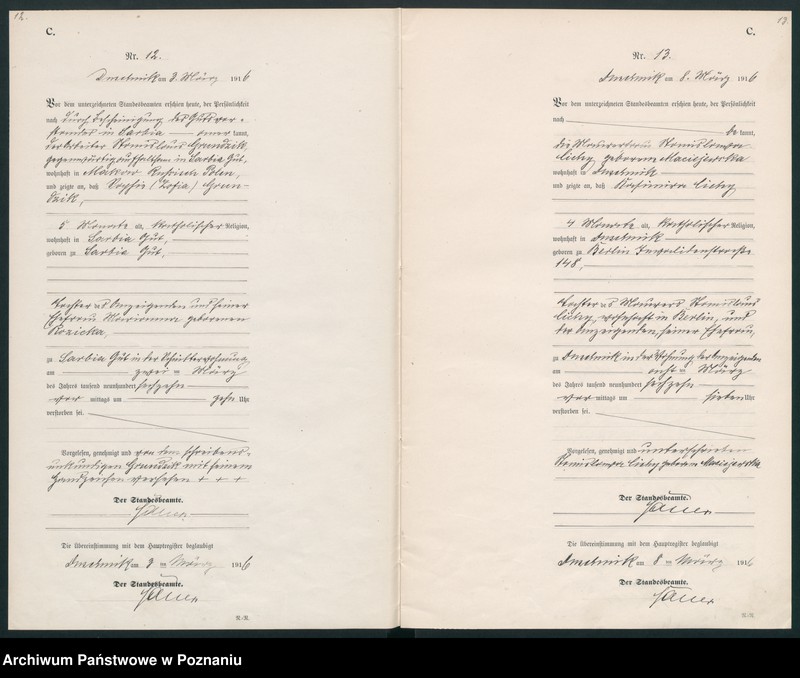 12.
C.
Nr. 12.
am 3. März 1916
Vor dem unterzeichneten Standesbeamten erschien heute, der Persönlichkeit
nach durch Bescheinigung des Gutsvor-
standes in Sarbia kannt,
der Arbeiter Stanislaus Grundzik,
in Sarbia Gut,
wohnhaft in Makow Russisch Polen,
und zeigte an, daß Sophie (Zofia) Grun-
dzik,
5 Monate alt, katholischer Religion,
wohnhaft in Sarbia Gut,
geboren zu Sarbia Gut,
Tochter des Anzeigenden und seiner
Ehefrau Marianna geborenen
Kozicka,
zu Sarbia Gut in der Schnitterwohnung,
am zwei ten März
des Jahres tausend neunhundert sechzehn
vor mittags um zehn Uhr
verstorben sei.
Vorgelesen, genehmigt und von dem schreibens-
unkundigen Grundzik mit seinem
Handzeichen versehen + + +
Der Standesbeamte.
Die Übereinstimmung mit dem Hauptregister beglaubigt
am 3 ten März 1916
Der Standesbeamte.
13.
C.
Nr. 13.
am 8. März 1916
Vor dem unterzeichneten Standesbeamten erschien heute, der Persönlichkeit
nach
be kannt,
die Maurerfrau Stanislawa
Cichy, geborene Maciejewska
wohnhaft in
und zeigte an, daß Kasimira Cichy,
4 Monate alt, katholischer Religion,
wohnhaft in
geboren zu Berlin Invalidenstraße
148,
Tochter des Maurers Stanislaus
Cichy, wohnhaft in Berlin, und
der Anzeigenden, seiner Ehefrau,
zu in der Wohnung der Anzeigenden
am acht ten März
des Jahres tausend neunhundert sechzehn
vor mittags um sieben Uhr
verstorben sei.
Vorgelesen, genehmigt und unterschrieben
Stanislawa Cichy geborene Maciejewska
Der Standesbeamte.
Die Übereinstimmung mit dem Hauptregister beglaubigt
am 8 ten März 1916
Der Standesbeamte.
Archiwum Państwowe w Poznaniu